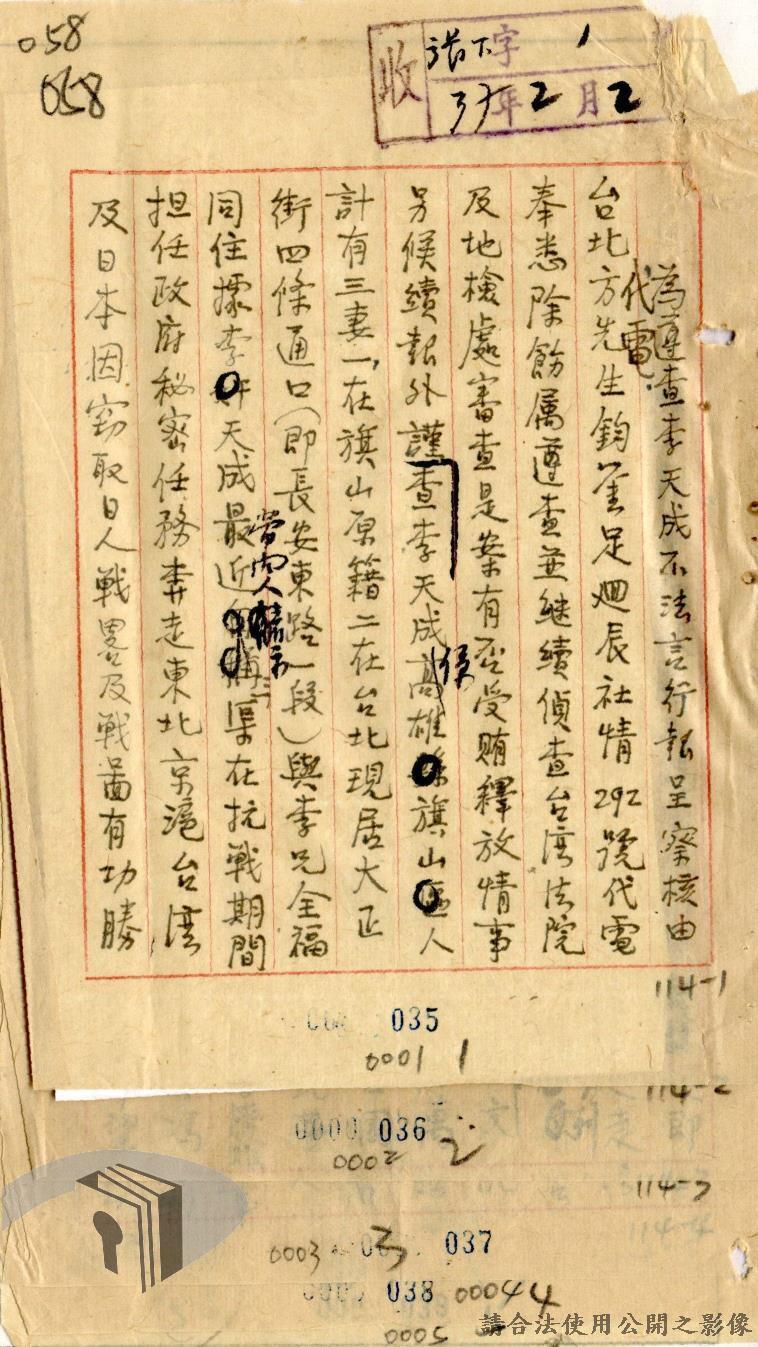 058
068
收
字 1
37年2月2
為遵查李天成不法言行報呈察核由
代電
台北方先生鈞鑒足迴辰社情292號代電
奉悉除飭属遵查並継續偵查台湾法院
及地檢處審查是案有否受賄釋放情事
另候續報外謹查李天成係高雄旗山人
計有三妻一在旗山原籍二在台北現居大正
街四條通口(即長安東路一段)與李兄全福
同住據李天成最近嘗向人渠在抗戰期間
担任政府秘密任務奔走東北京滬台湾
及日本因窃取日人戰畧及戰啚有功勝
114-1
035
0001 1
114-2
0000 036
0002 2
114-3
114-4
0003 3 037
038 0004 4
0005
請合法使用公開之影像